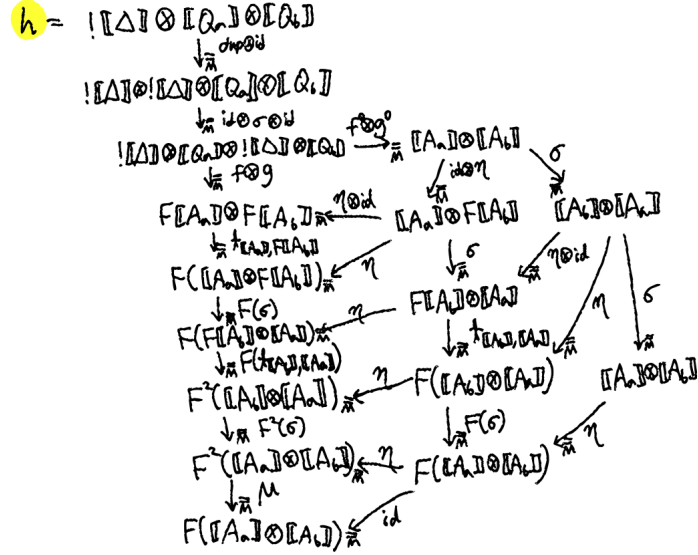 h = !⟦Δ⟧ ⊗ ⟦Qₐ⟧ ⊗ ⟦Q_b⟧
↓_M̄ dup⊗id
!⟦Δ⟧⊗!⟦Δ⟧⊗⟦Qₐ⟧⊗⟦Q_b⟧
↓_M̄ id⊗σ⊗id
!⟦Δ⟧⊗⟦Qₐ⟧⊗!⟦Δ⟧⊗⟦Q_b⟧ f⁰⊗g⁰ →_M̄ ⟦Aₐ⟧⊗⟦A_b⟧
↓_M̄ f⊗g ↙_M̄ id⊗η ↘_M̄ σ
F⟦Aₐ⟧⊗F⟦A_b⟧ _M̄← η⊗id ⟦Aₐ⟧⊗F⟦A_b⟧ ⟦A_b⟧⊗⟦Aₐ⟧
↓_M̄ t_⟦Aₐ⟧,F⟦A_b⟧ η ↓_M̄ σ η⊗id
F(⟦Aₐ⟧⊗F⟦A_b⟧)_M̄ η σ
↓_M̄ F(σ) η F⟦A_b⟧⊗⟦Aₐ⟧
F(F⟦A_b⟧⊗⟦Aₐ⟧)_M̄ ↓_M̄ t_⟦A_b⟧,⟦Aₐ⟧
↓_M̄ F(t_⟦A_b⟧,⟦Aₐ⟧)
F²(⟦A_b⟧⊗⟦Aₐ⟧)_M̄ ← η F(⟦A_b⟧⊗⟦Aₐ⟧) ⟦Aₐ⟧⊗⟦A_b⟧
↓_M̄ F²(σ) ↓_M̄ F(σ) ↙_M̄ η
F²(⟦Aₐ⟧⊗⟦A_b⟧)_M̄ ← η F(⟦Aₐ⟧⊗⟦A_b⟧)
↓_M̄ μ id
F(⟦Aₐ⟧⊗⟦A_b⟧)_M̄